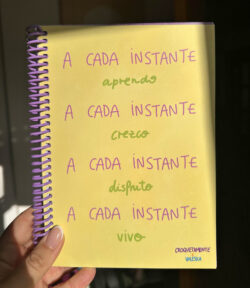 A CADA INSTANTE
aprendo
A CADA INSTANTE
crezco
A CADA INSTANTE
disfruto
A CADA INSTANTE
vivo
CROQUETAMENTE
VALERIA